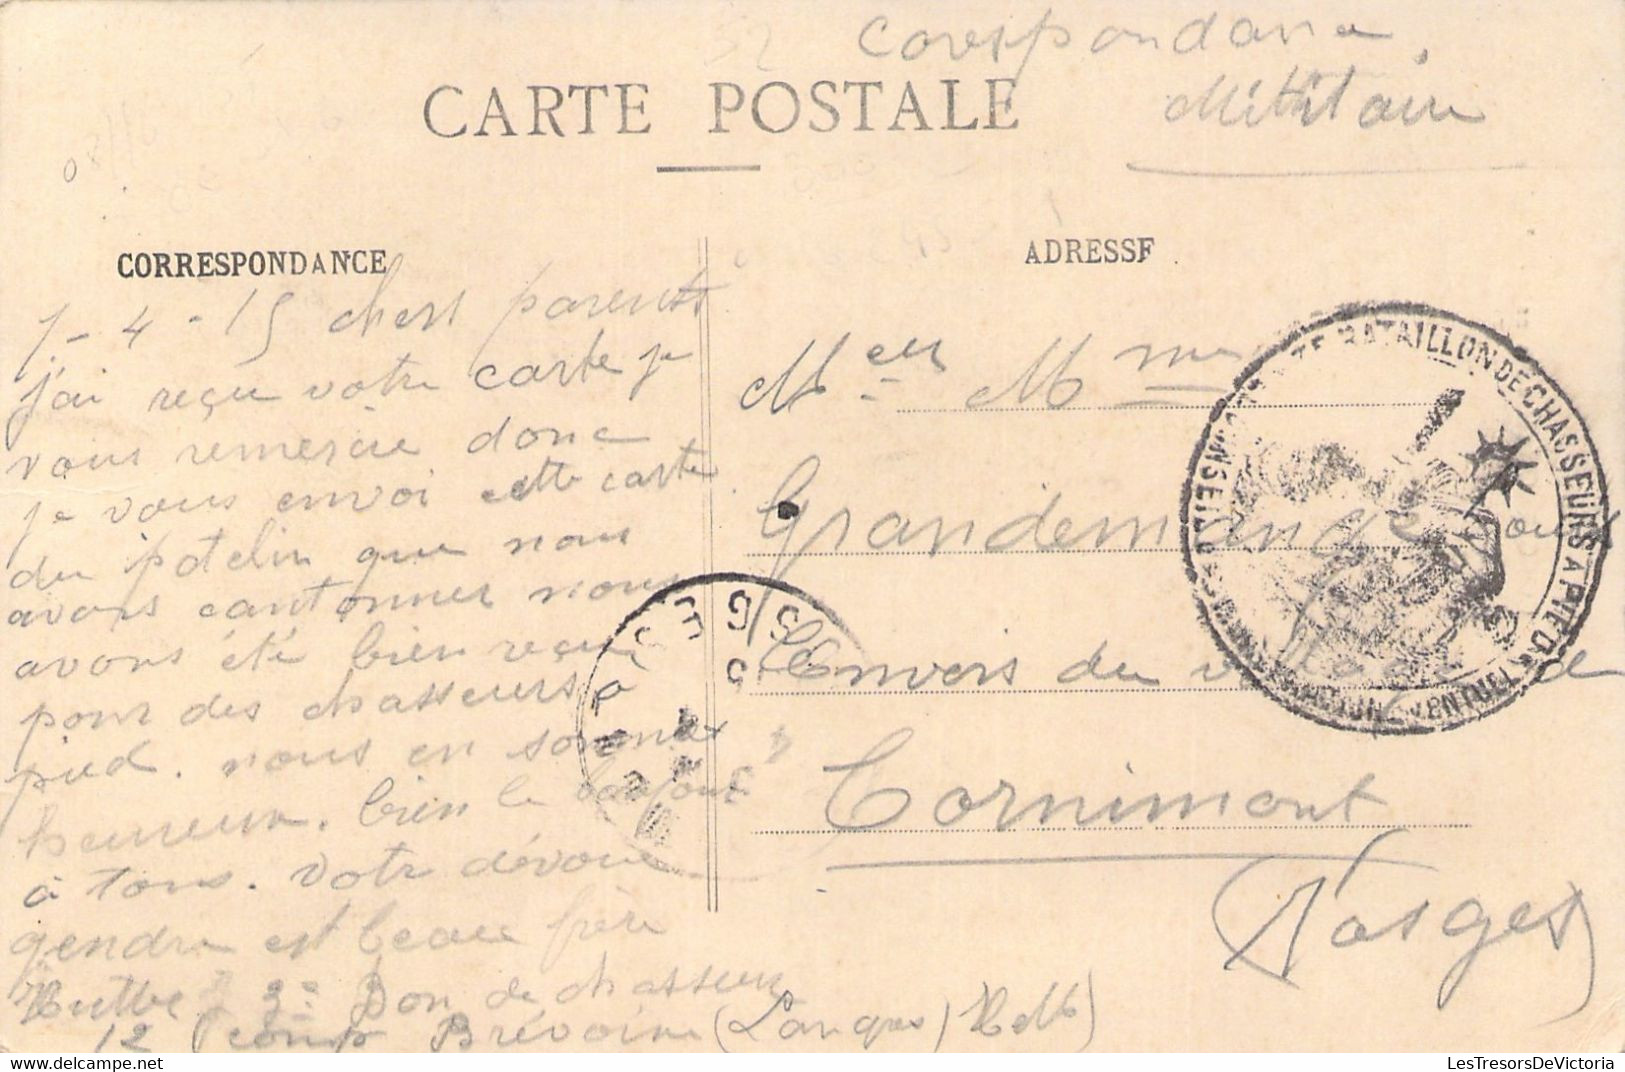 Corespondance
Militaire
CARTE POSTALE
CORRESPONDANCE
ADRESSE
7-4-15 chers parents
j'ai reçu votre carte je
vous remercie donc
je vous envoi cette carte
du patelin que nous
avons cantonner nous
avons été bien reçu
pour des chasseurs a
pied. nous en sommes
heureux. bien le bonjour
à tous. votre dévoué
gendre et beau frère
3e Bon de chasseurs
12 comp Brévoine (Langres) Hte M)
Mr et Mme
Grandemange
Envers du
Cornimont
Vosges
BATAILLON DE CHASSEURS A PIED
VOSGES
LesTresorsDeVictoria.com